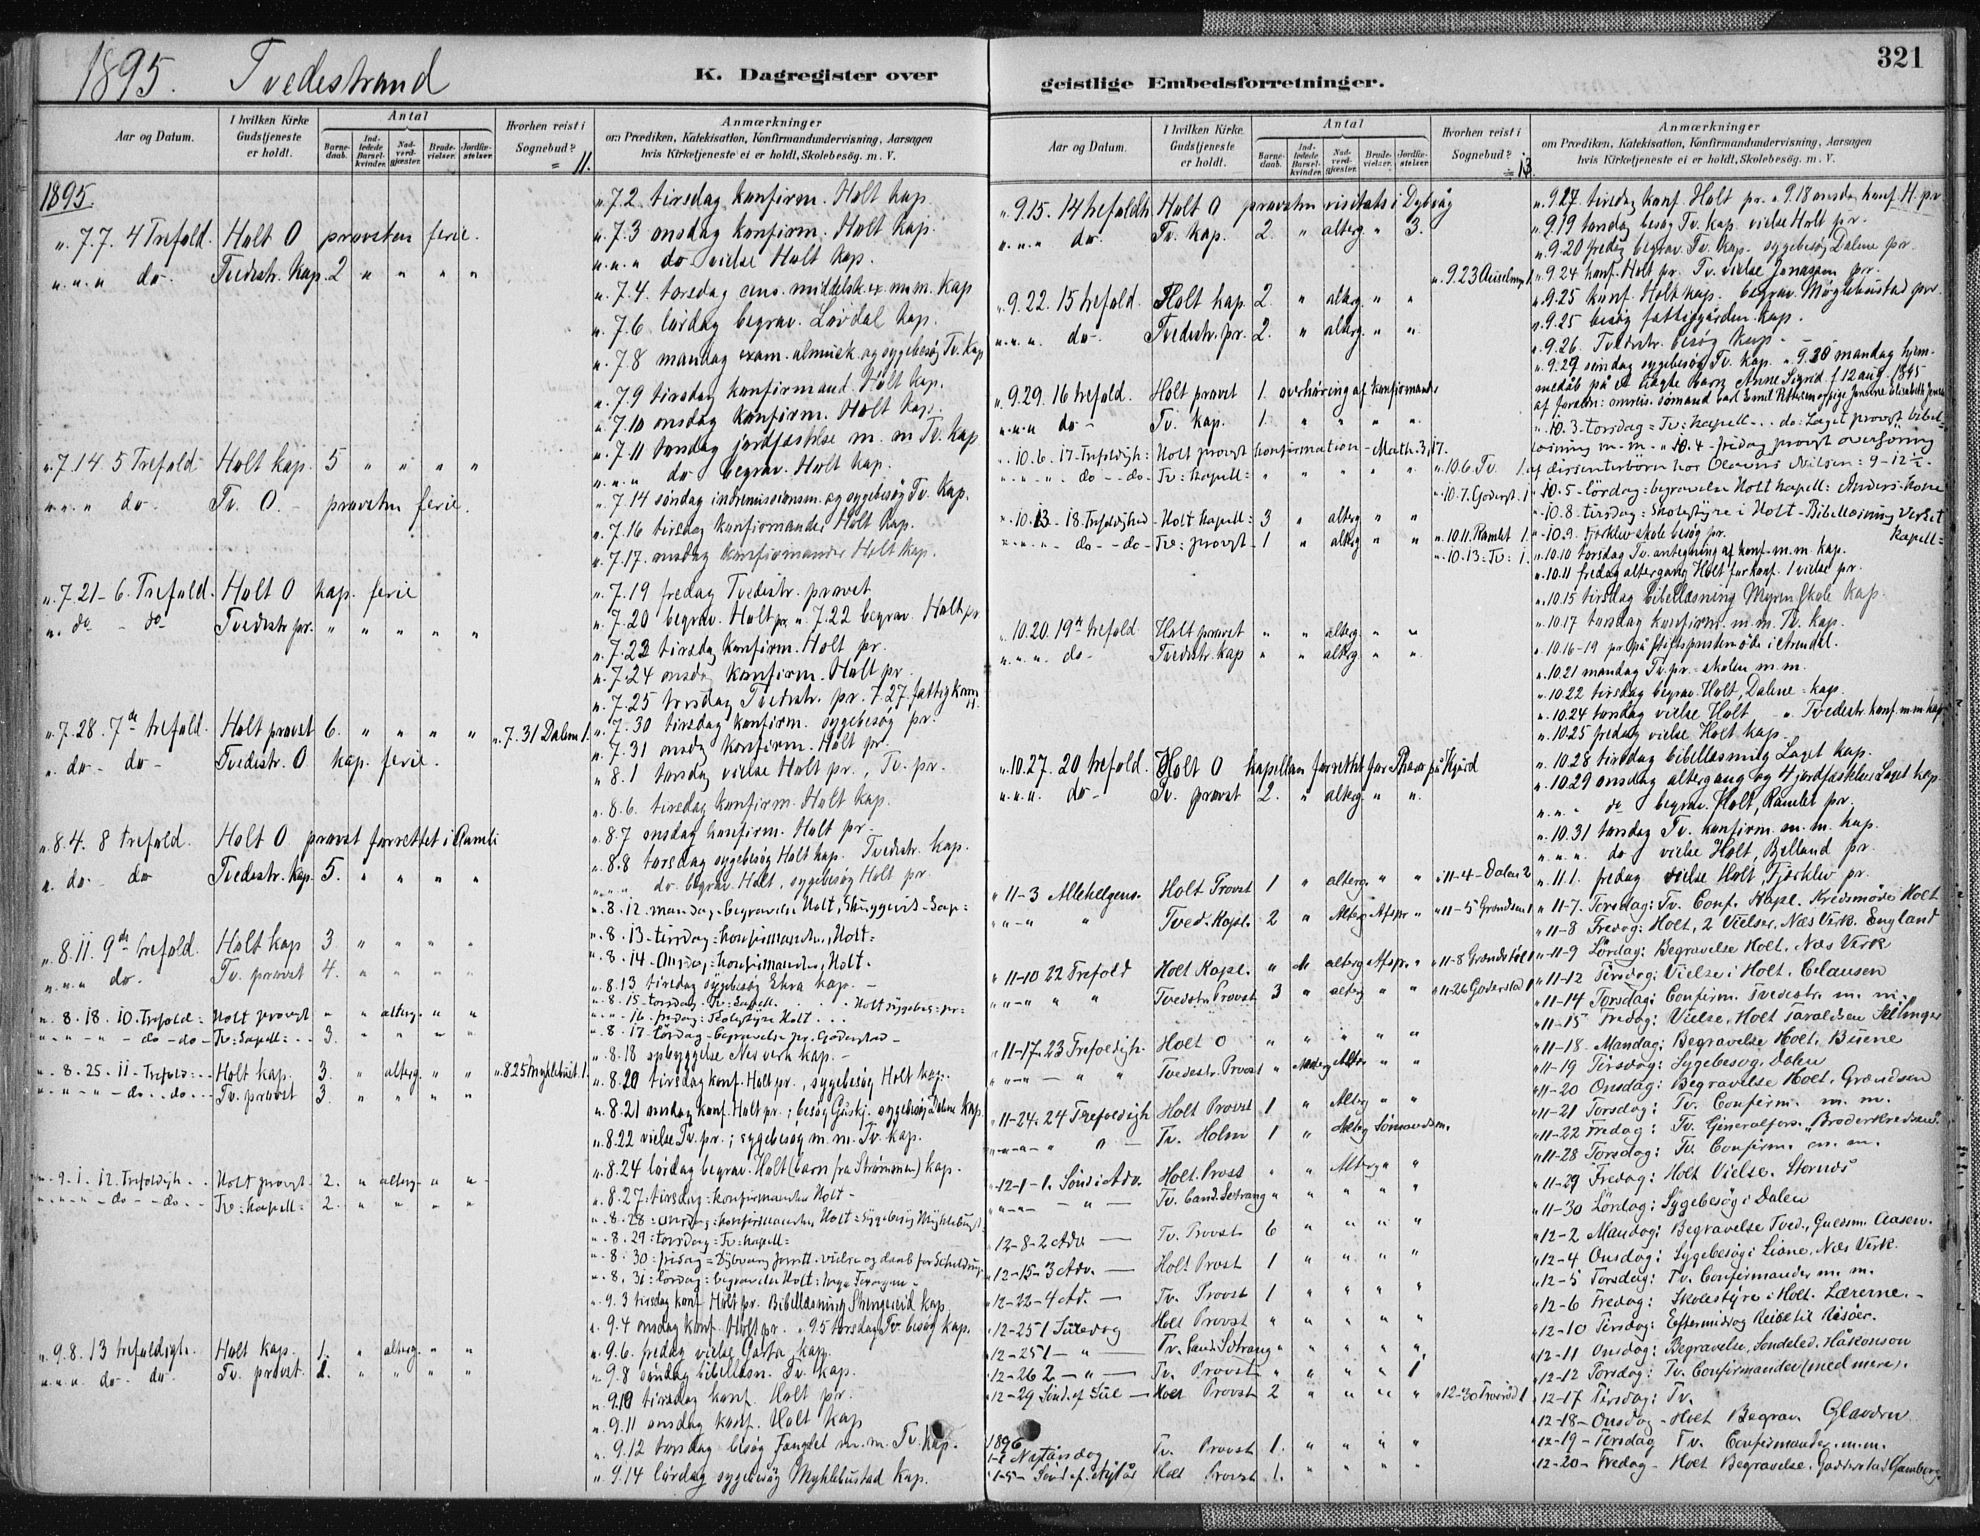 1895. Tvedestrand
K. Dagregister over
geistlige Embedsforretninger.
321
Aar og Datum.
I hvilken Kirke Gudstjeneste er holdt.
Antal
Barne-daab.
Ind-ledede Barsel-kvinder.
Nad-verd-gjæster.
Brude-vielser.
Jordfæ-stelser.
Hvorhen reist i Sognebud?
= 11.
Anmærkninger
om Prædiken, Katekisation, Konfirmandundervisning, Aarsagen
hvis Kirketjeneste ei er holdt, Skolebesøg m. V.
1895.
" 7.7. 4 Trefold. Holt O provsten ferie.
" " " do. Tvedestr. Kap. 2 " " " "
" 7.14 5 Trefold Holt kap. 5 " " " "
" " " do Tv. O. - provsten ferie.
" 7.21 - 6. Trefold. Holt O kap. ferie
" do - do Tvedestr. pr. " " " " "
" 7.28. 7de trefold. Holt provst 6. " " " " " 7.31 Dalen 1.
" do - do - Tvedestr. O kap. ferie.
" 8.4. 8 trefold. Holt O provst forrettet i Aamli
" do - do Tvedestr. Kap. 5. " " " "
" 8.11. 9de trefold. Holt kap 3. " " " "
" " " do. Tv. provst 4. " " " "
" 8.18. 10. Trefold = Holt provst " " alterg. " "
" " " - do - do - Tv: kapell: 3. " " " "
" 8.25. 11 - Trefold: Holt kap. 3. " alterg. " " " 8.25 Myklebust. 1.
" " " - do - do - Tv. provst 3. " " " "
" 9.1. 12. Trefoldigh. Holt provst. 2. " alterg. " "
" " " - do - do - Tv: kapell: 2. " " " "
" 9.8. 13 trefoldigh. Holt kap. 1. " alterg. " "
" " " do. do. Tv. provst. 1. " " " "
" 7.2. tirsdag konfirm. Holt kap.
" 7.3 onsdag konfirm. Holt kap.
" " " do vielse Holt kap.
" 7.4. torsdag cens. middelsk.ex. m.m. kap
" 7.6 lørdag begrav. Løvdal kap.
" 7.8 mandag exam. almuesk. og sygebesøg Tv. kap
" 7.9 tirsdag konfirmand. Holt kap.
" 7.10 onsdag konfirm. Holt kap.
" 7.11 torsdag jordfæstelse m. m Tv. kap
" " " do begrav. Holt kap.
" 7.14 søndag indremissionsm. og sygebesøg Tv. kap.
" 7.16 tirsdag konfirmander Holt kap.
" 7.17. onsdag konfirmander Holt kap.
" 7.19 fredag Tvedestr. provst
" 7.20 begrav. Holt pr. " 7.22 begrav. Holt pr
" 7.22 tirsdag konfirm. Holt pr.
" 7.24 onsdag konfirm. Holt pr.
" 7.25 torsdag Tvedestr. pr. 7.27 fattigkom
" 7.30 tirsdag konfirm. sygebesøg pr.
" 7.31 onsdg konfirm. Holt pr.
" 8.1 torsdag vielse Holt pr., Tv. pr.
" 8.6. tirsdag konfirm. Holt kap.
" 8.7 onsdag konfirm. Holt pr.
" 8.8 torsdag sygebesøg Holt kap. Tvedestr. kap.
" " " do begrav. Holt, sygebesøg Holt pr
" 8.12. mandag = begravelse Holt,
" 8.13 - tirsdag = konfirmander, Holt =
" 8.14 - Onsdag = konfirmander, Holt.
" 8.13 tirsdag sygebesøg kap. -
" 8.15 - torsdag: Tv: kapell. . . . Holt sygebes = pr =
" " " 16. fredag = Skolestyre Holt . . .
" 8.17 - Lördag - begravelse pr. Goderstad -
" 8.18 opbyggelse Nes verk kap. -
" 8.20 tirsdag konf. Holt pr., sygebesøg Holt kap.
" 8.21 onsdag konf. Holt pr.; besøg Guskj. sygebesøg Dalene kap.
" 8.22 vielse Tv. pr.; sygebesøg m. m. Tv. kap.
" 8.24 lørdag begrav. Holt (barn fra Strømmen) kap.
" 8.27 - tirsdag = konfirmander Holt -
" 8.28 = onsdag = konfirmander Holt = Sygebesög Myklebust
" 8.29 = torsdag = Tv = kapell =
" 8.30 = fredag = Dybvaag forrett. vielse og daab for Scheldrup
" 8.36: lördag = begravelse Holt:
" 9.3 tirsdag konf. Holt pr. Bibellæsning Strengereid kap.
" 9.4 onsdag konf. Holt pr. " 9.5 torsdag Tv. besøg kap.
" 9.6. fredag vielse Gasta kap.
" 9.8 søndag bibellæsn. Tv. kap.
" 9.10 tirsdag konf. Holt pr.
" 9.11 onsdag konf. Holt kap
" 9.12 torsdag besøg Fængslet m. m. Tv. kap.
" 9.14 lördag sygebesøg Myklebustad kap.
Aar og Datum.
I hvilken Kirke Gudstjeneste er holdt.
Antal
Barne-daab.
Ind-ledede Barsel-kvinder.
Nad-verd-gjæster.
Brude-vielser.
Jordfæ-stelser.
Hvorhen reist i Sognebud?
= 13.
Anmærkninger
om Prædiken, Katekisation, Konfirmandundervisning, Aarsagen
hvis Kirketjeneste ei er holdt, Skolebesøg m. V.
" 9.15. 14 trefoldh. Holt O provsten visitats i Dybvåg
" " " do. Tv. kap. 2. " alterg. " 3.
" 9.22. 15 trefold. Holt kap. 2. " alterg. " " " 9.23 1
" " " do - Tvedestr. pr. 2. " alterg. " "
" 9.29. 16 trefold. Holt provst 1. overhøring af konfirmander
" " " do - Tv. kap. 1. " " " "
" 10.6. 17 - Trefoldigh: Holt provst konfirmation - Math. 3, 17. " 10.6 Tv. 1.
" " " do - do - Tv: kapell: " " " " " " 10.7. Goderst. 1
" 10.13 - 18. Trefoldighed - Holt kapell: 3 " alterg " " " 10.11. Ramlet 1.
" " " do - do - Tv: provst - 1 " alterg " " " 10.13: Tv: 1.
" 10.20. 19de trefold. Holt provst " " alterg. " "
" " " do - Tvedestr. kap " " alterg. " "
" 10.27. 20 trefold. Holt O kapellan forrettet for Thaar på Hyard
" " " do - Tv. provst 2. " alterg. " "
" 11-3 Allehelgens. Holt Provst 1 " alterg. " " " 11-4 - Dalen 2
" " - " " Tved. Kapl. 2 " Alterg Afspr. " " 11-5 Grændsen 1
" 11-10 22 Trefold Holt Kapl. " " alterg Afspr. " " 11-8 Grændstöl 1
" " - " " " Tvedestr. Provst 3 " alterg " " " 11-26 Goderstad 1
" 11-17. 23 Trefoldigh. Holt O " " " " "
" " - " — " " Tvedestr. Provst " " Alter " "
" 11-24. 24 Trefoldigh Holt Provst 1 " Alterg " "
" " - " — " " — Tv. Holm 1 " Alterg Sömandsm.
" 12-1 - 1. Sönd i Adv. Holt. Provst " " Alterg " "
" " - " — " — Tv. Cand. Sötrang " " " " "
" 12-8-2 Adv — Tv. Provst. 6 " " " "
" 12-15-3 Adv. — Holt Provst 1 " " " "
" 12-22-4 Ad. — Tv. Provst 1 " " " "
" 12-25 1 Juledag Holt Provst " " " " "
" 12-25 1 - " — Tv. Cand. Sötrang " " " " "
" 12-26 2 - " — Tv. Provst " " " " 1
" 12-29 Sönd. ef. Jul — Holt Provst 2 " " " " " 12-30 1
1896
1-1 Nytårsdag Tv. Provst 1. " " " "
" 1-5 - Sönd ef. Nytår Holt Provst. 1. " " " "
" 9.17 tirsdag konf. Holt pr. " 9.18 onsdag konf. H. pr
" 9.19 torsdag besøg Tv. kap. vielse Holt pr.
" 9.20 fredag begrav. Tv. kap. sygebesøg Dalene pr.
" 9.24 konf. Holt pr. Tv. vielse Jonassen pr.
" 9.25 konf. Holt kap. begrav. Møglebustad pr.
" 9.25 besøg fattiggården kap.
" 9.26. Tvedestr. besøg kap. -
" 9.29 søndag sygebesøg Tv. kap. " 9.30 mandag hjem-
medåb på et ægte barn Anne Sigrid f. 12 aug. 1895
af foreldre: sömand Carl Emil Pettersen og pige Elisabeth
" 10.3 - torsdag = Tv: kapell . . do: Laget provst bibel-
læsning m. m. " 10.4 - fredag provst overhøring
af dissenterbörn hos Olavus Nilsen: 9 - 12½ -
" 10.5 - lördag: begravelse Holt kapell: Anders
" 10.8 - tirsdag: Skolestyre i Holt - Bibellæsning Verket
" 10.9. Fjorklev skole besøg pr. kapell =
" 10.10 torsdag Tv. antegning af konf. m. m. kap.
" 10.11 fredag altergang Holt for konf. 1 vielse pr.
" 10.15 tirsdag bibellæsning Myren Skole kap.
" 10.17 torsdag konfirm. m. m. Tv. kap.
" 10.16-19 pr. på Stiftsprestemöde i Arendal.
" 10.21 mandag Tv. pr. = skolen m. m.
" 10.22 tirsdag begrav. Holt, Dalene = kap.
" 10.24 torsdag vielse Holt " Tvedestr. konf. m. m kap
" 10.25 fredag vielse Holt kap.
" 10.28 tirsdag bibellæsning Laget kap.
" 10.29 onsdag altergang og 4 jordfæstelser Laget kap.
" " " do begrav. Holt, Ramlet pr.
" 10.31 torsdag Tv. konfirm. m. m. kap.
" " " do vielse Holt, Belland pr.
" 11.1. fredag vielse Holt, Fjorklev pr.
" 11-7. Torsdag: Tv. Conf. Kapl. Kredsmøde Holt
" 11-8 Fredag: Holt, 2 Vielser. Næs Verk. England
" 11-9 Lördag: Begravelse Holt. Næs Verk
" 11-12 Tirsdag: Vielse i Holt. Clausen
" 11-14 Torsdag: Confirm. Tvedestr. m. m.
" 11-15 Fredag: Vielse. Holt Taraldsen Sellinger
" 11-18. Mandag: Begravelse Holt. Buene
" 11-19 Tirsdag: Sygebesøg. Dalen
" 11-20 Onsdag: Begravelse Holt. Grændsen
" 11-21 Torsdag: Tv. Confirm. m. m.
" 11-22 Fredag: Tv. Generalfors. "Broderkredsen"
" 11-28 Torsdag: Tv. Confirm. m. m.
" 11-29 Fredag: Holt Vielse. Stornes
" 11-30 Lördag: Sygebesög i Dalen
" 12-2 Mandag: Begravelse Tved., Guldsm. Aasen.
" 12-4 Onsdag: Sygebesög i Liane, Næs Verk.
" 12-5 Torsdag: Tv. Confirmander m. m.
" 12-6 Fredag: Skolestyre i Holt. Lærerne. -
" 12-10 Tirsdag: Eftermiddag Reise til Risöer.
" 12-11 Onsdag: Begravelse, Söndeled. Håkonson
" 12-12 Torsdag: Tv. Confirmander (med mere).
" 12-17 Tirsdag: Tv.
" 12-18 - Onsdag - Holt Begrav. Glavdrn
" 12-19 - Torsdag Tv. Confirmander m. m.
" 12-20 - Fredag - Holt Begravelse. Goderstad